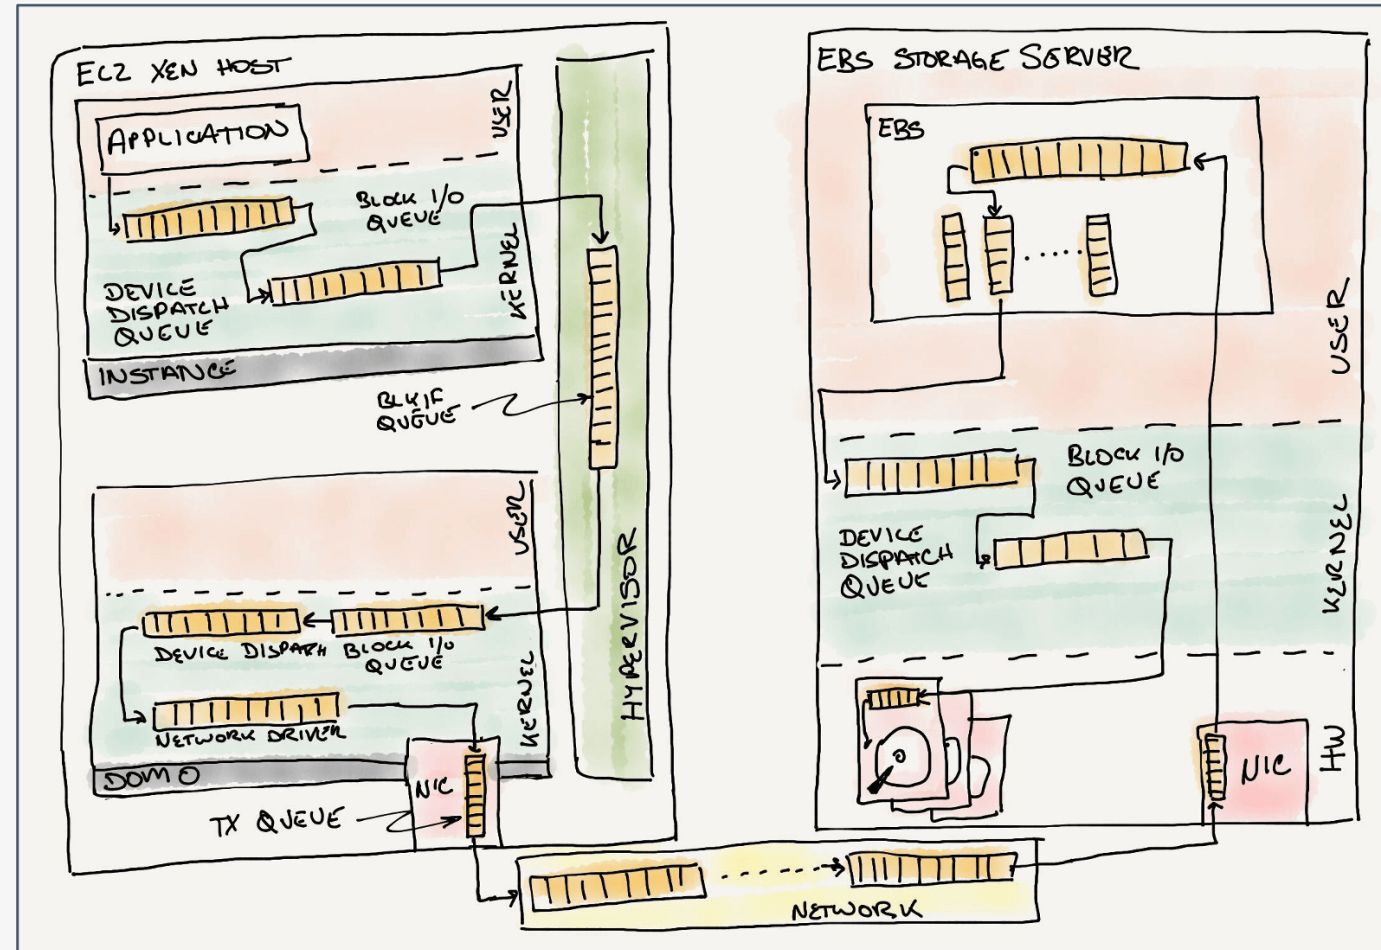 EC2 XEN HOST
APPLICATION
USER
BLOCK I/O
QUEUE
KERNEL
DEVICE
DISPATCH
QUEUE
INSTANCE
BLKIF
QUEUE
HYPERVISOR
USER
DEVICE DISPATCH
BLOCK I/O
QUEUE
NETWORK DRIVER
KERNEL
DOM 0
NIC
TX QUEUE
NETWORK
EBS STORAGE SERVER
EBS
USER
BLOCK I/O
QUEUE
DEVICE
DISPATCH
QUEUE
KERNEL
NIC
HW